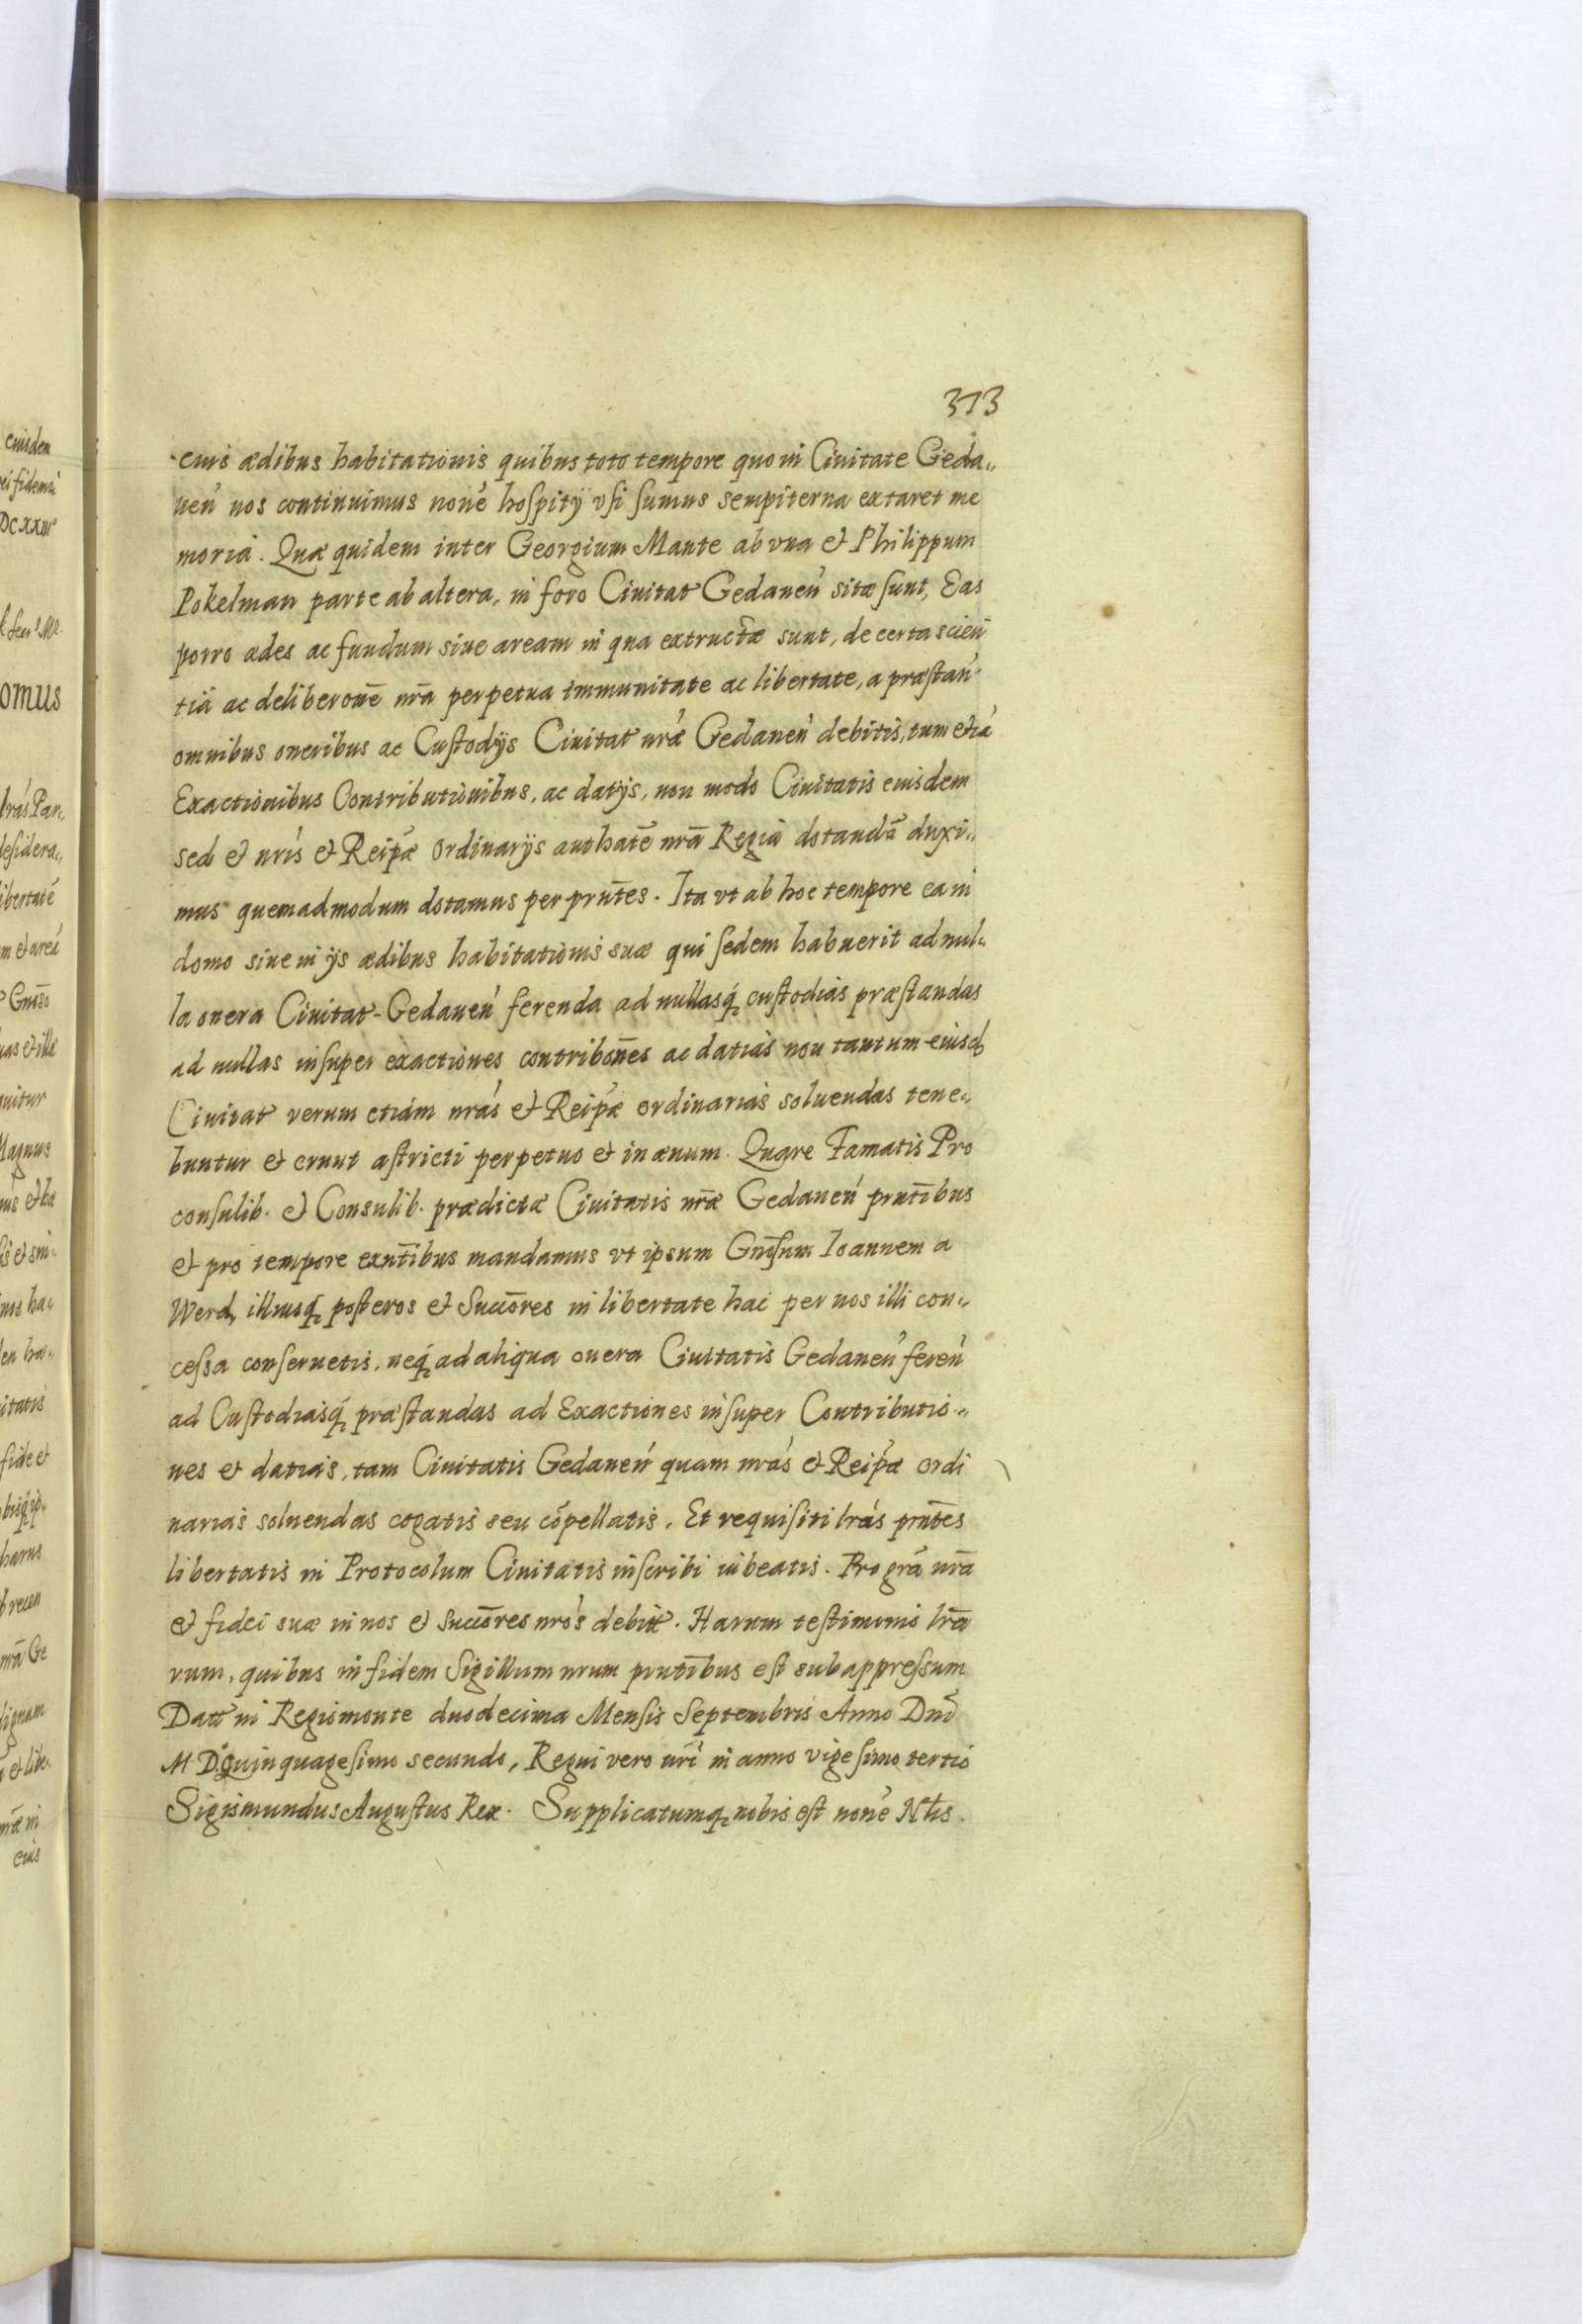 373
eius ædibus habitationis quibus toto tempore quo in Ciuitate Geda„
nen̄ nos continuimus noñe hospitÿ vsi sumus sempiterna extaret me
moria. Quæ quidem inter Georgium Mante ab vna et Philippum
Pokelman parte ab altera, in foro Ciuitat Gedanen̄ sitæ sunt, Eas
porro ædes ac fundum siue aream in qua extructæ sunt, de certa scien̄
tiā ac deliberoñe nr̄a perpetua immunitate ac libertate, a præstan̄
omnibus oneribus ac Custodijs Ciuitat nr̄æ Gedanen̄ debitis, tum etiā
Exactionibus Contributionibus, ac datijs, non modo Ciuitatis eiusdem
sed et nr̄is et Reip̄æ ordinarijs authat̄e nr̄ā Regiā dotandā duxi„
mus quemadmodum dotamus per prn̄tes. Ita vt ab hoc tempore ea in
domo siue in ijs ædibus habitationis suæ qui sedem habuerit ad nul„
la onera Ciuitat Gedanen̄ ferenda ad nullasq́ custodias præstandas
ad nullas insuper exactiones contribon̄es ac datias non tantum eiusd
Ciuitat verum etiam nr̄as et Reip̄æ ordinarias soluendas tene„
buntur et erunt astricti perpetuo et in æuum. Quare Famatis Pro
consulib. et Consulib. prædictæ Ciuitatis nr̄æ Gedanen̄ prn̄tibus
et pro tempore exn̄tibus mandamus vt ipsum Gn̄sum Ioannem a
Werd, illiusq́ posteros et Succ̄ores in libertate hac per nos illi con„
cessa conseruetis, neq́ ad aliqua onera Ciuitatis Gedanen̄ feren̄
ad Custodiasq́ præstandas ad Exactiones insuper Contributio„
nes et datias, tam Ciuitatis Gedanen̄ quam nr̄as et Reip̄æ ordi
narias soluendas cogatis seu cōpellatis. Et requisiti lr̄as prn̄tes
libertatis in Protocolum Ciuitatis inscribi iubeatis. Pro grā nr̄a
et fidei suæ in nos et Succ̄ores nr̄os debitt. Harum testimonio lr̄a
rum, quibus in fidem Sigillum nr̄um prn̄tibus est subappressum
Datt in Regiomonte duodecima Mensis Septembris Anno Dn̄i
M D. Quinquagesimo secundo, Regni vero nr̄i in anno vigesimo tertio
Sigismundus Augustus Rex. Supplicatumq́ nobis est noñe Nb̄is.